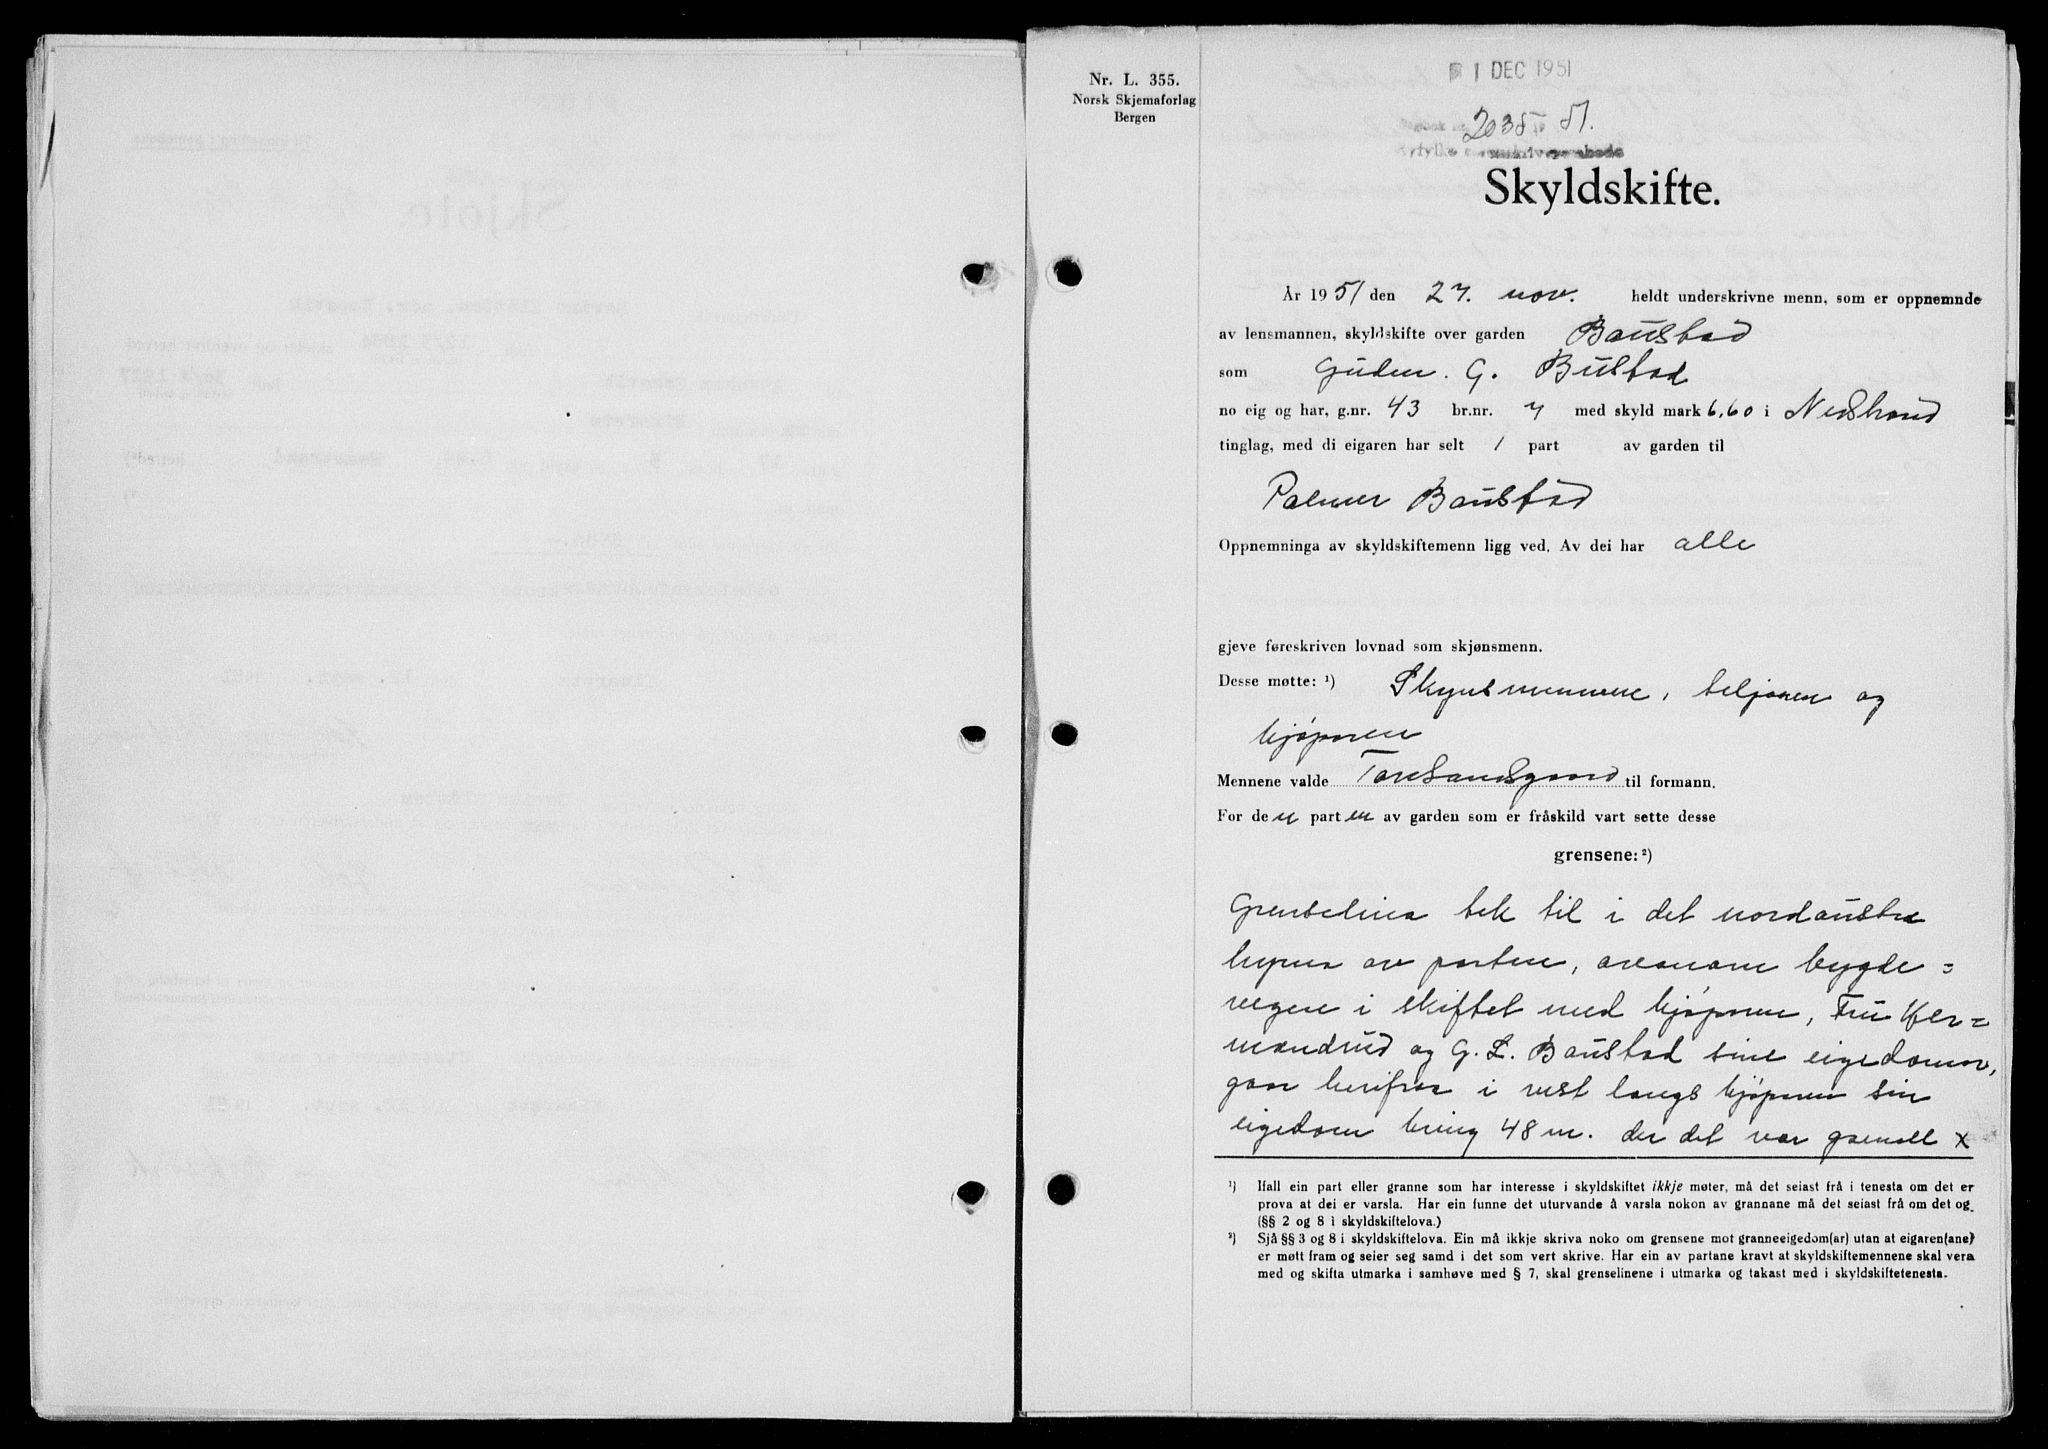 Nr. L. 355.
Norsk Skjemaforlag
Bergen
1 DEC 1951
2035 51.
Skyldskifte.
År 1951 den 27. nov. heldt underskrivne menn, som er oppnemnde
av lensmannen, skyldskifte over garden Baustad
som Gudm. G. Bustad
no eig og har, g.nr. 43 br.nr. 7 med skyld mark 6,60 i Nedstrand
tinglag, med di eigaren har selt 1 part av garden til
Palmer Baustad
Oppnemninga av skyldskiftemenn ligg ved. Av dei har alle
gjeve føreskriven lovnad som skjønsmenn.
Desse møtte: ¹) Skynsmennene, seljaren og
kjøparen
Mennene valde Tore Sandsgaard til formann.
For den parten av garden som er fråskild vart sette desse
grensene: ²)
Grenselina tek til i det nordaustre
hyrna av parten, ovanom bygde=
vegen i skiftet med kjøparen, Fru
og G. L. Baustad sine eigedomar,
gaar herifraa i vest langs kjøparen sin
eigedom kring 48 m. der det var gamall x
¹) Ifall ein part eller granne som har interesse i skyldskiftet ikkje møter, må det seiast frå i tenesta om det er
prova at dei er varsla. Har ein funne det uturvande å varsla nokon av grannane må det seiast frå om det og.
(§§ 2 og 8 i skyldskiftelova.)
²) Sjå §§ 3 og 8 i skyldskiftelova. Ein må ikkje skriva noko om grensene mot granneeigedom(ar) utan at eigaren(ane)
er møtt fram og seier seg samd i det som vert skrive. Har ein av partane kravt at skyldskiftemennene skal vera
med og skifta utmarka i samhøve med § 7, skal grenselinene i utmarka og takast med i skyldskiftetenesta.